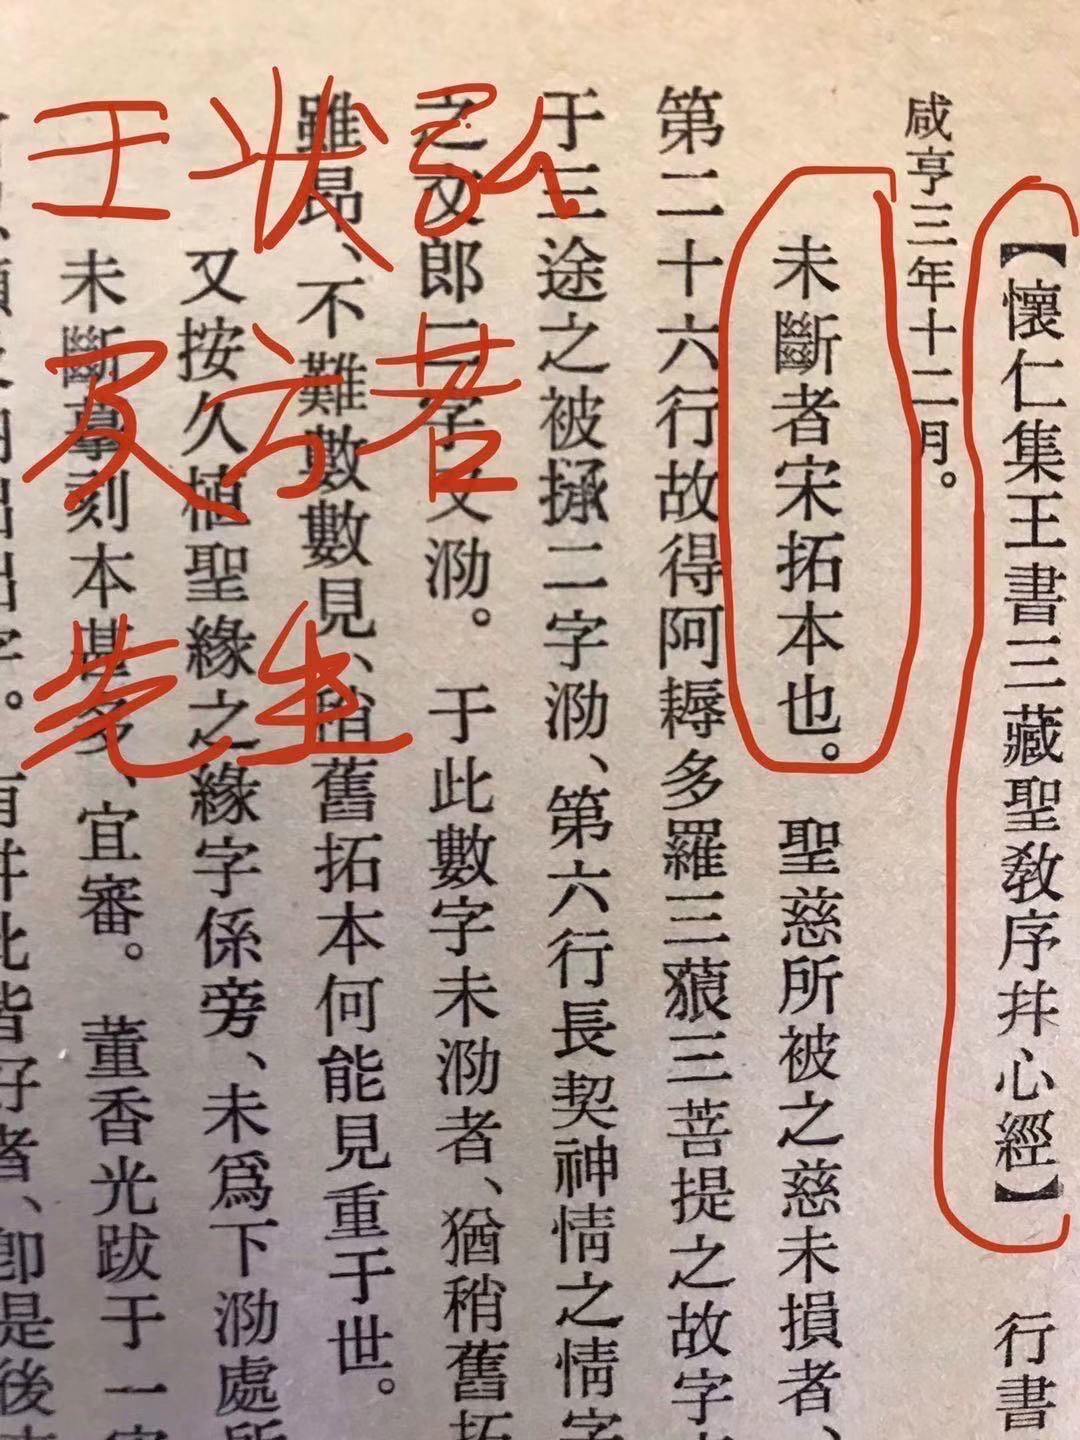 【懷仁集王書三藏聖教序幷心經】 行書
咸亨三年十二月。
未斷者宋拓本也。 聖慈所被之慈未損者、
第二十六行故得阿耨多羅三藐三菩提之故字
于三途之被拯二字泐、第六行長契神情之情字
之文郎二字又泐。 于此數字未泐者、猶稍舊拓
雖昂、不難數數見、稍舊拓本何能見重于世。
又按久植聖緣之緣字係旁、未爲下泐處所
未斷摹刻本甚多、宜審。 董香光跋于一
字。有幷此皆好者、卽是後
王状弘
及方若
先生